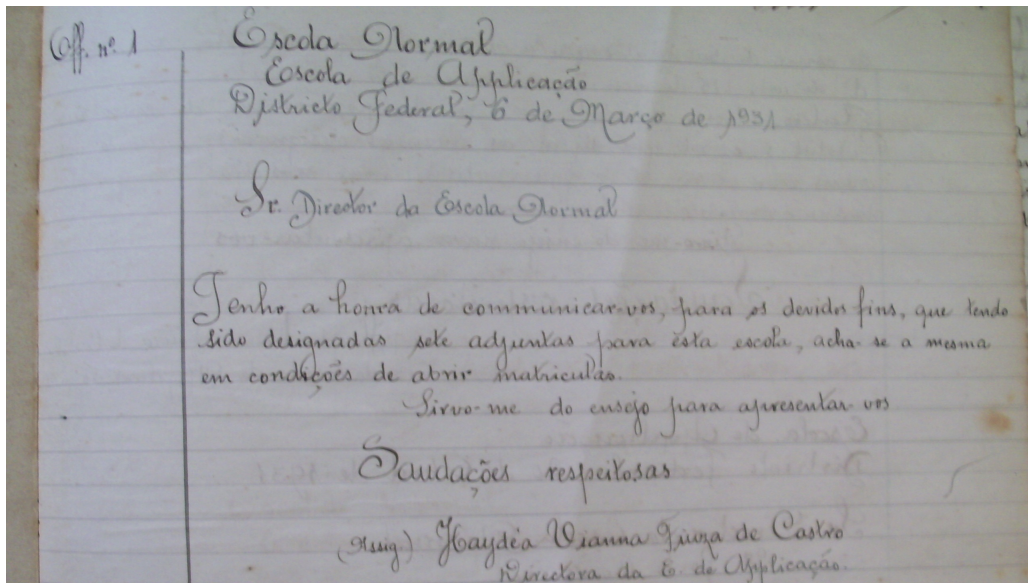 Off. nº 1
Escola Normal
Escola de Applicação
Districto Federal, 6 de Março de 1931
Sr. Director da Escola Normal
Tenho a honra de communicar-vos, para os devidos fins, que tendo
sido designadas sete adjuntas para esta escola, acha-se a mesma
em condições de abrir matriculas.
Sirvo-me do ensejo para apresentar-vos
Saudações respeitosas
(Assig.) Haydéa Vianna Fiuza de Castro
Directora da E. de Applicação.